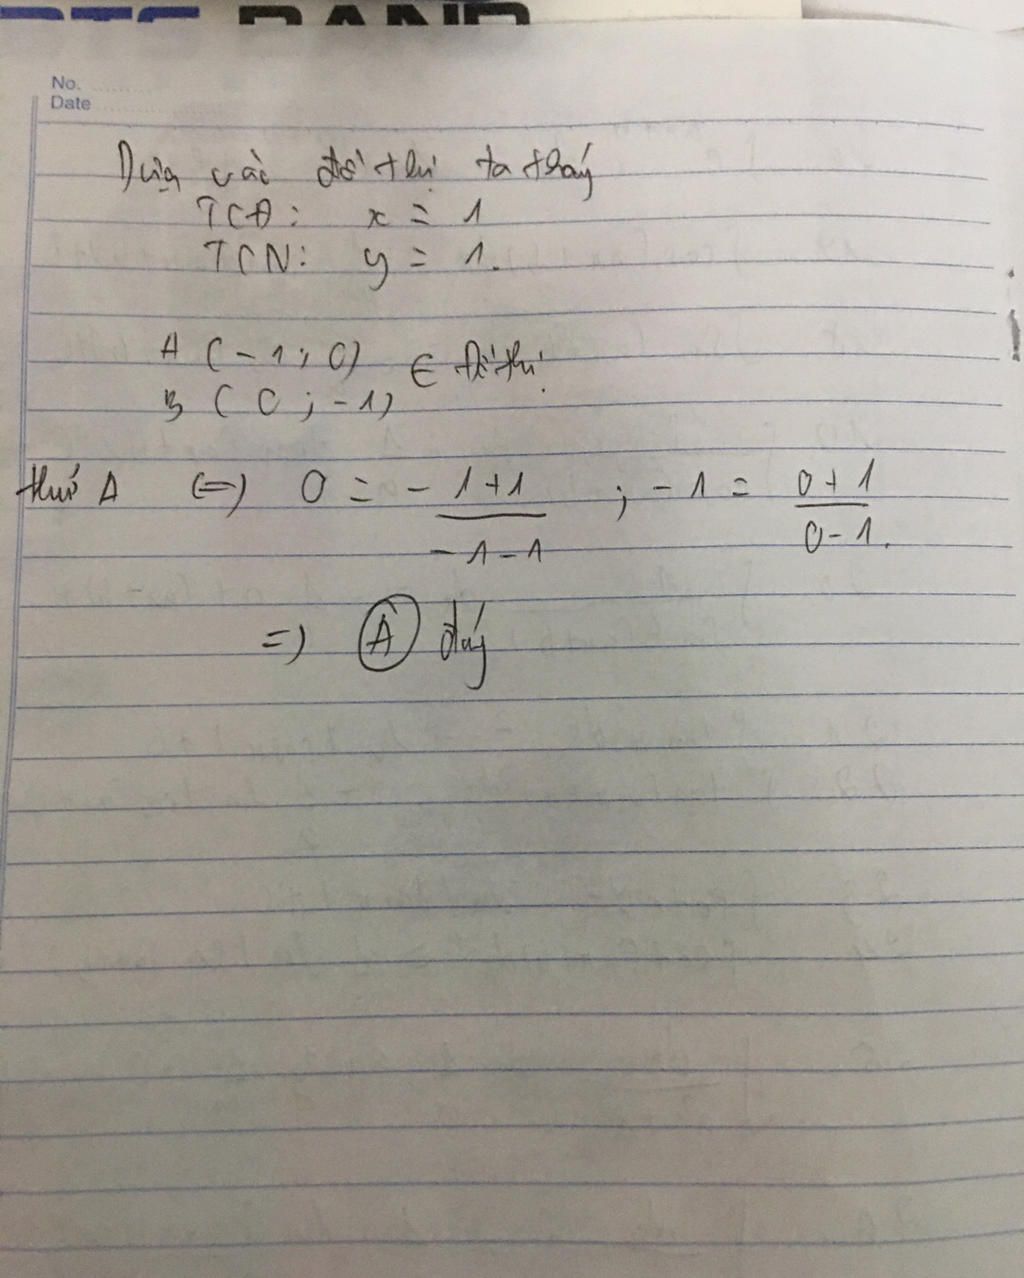 RTS BAND
No.
Date
Dựa vào đồ thị ta thấy
TCĐ: x = 1
TCN: y = 1.
A (-1; 0)
B (0; -1) ∈ đồ thị
thử A (=) 0 = - 1+1 / -1-1 ; -1 = 0+1 / 0-1.
=) A đúng